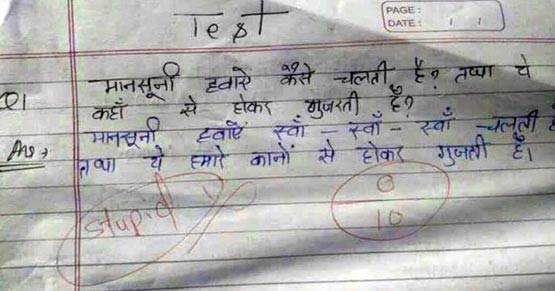 Test
PAGE:
DATE: / /
Q1 मानसूनी हवाऐं कैसे चलती है? तथा ये
कहाँ से होकर गुजरती है?
Ans → मानसूनी हवाऐं स्वाँ - स्वाँ - स्वाँ चलती है
तथा ये हमारे कानों से होकर गुजती है।
Stupid
0
10